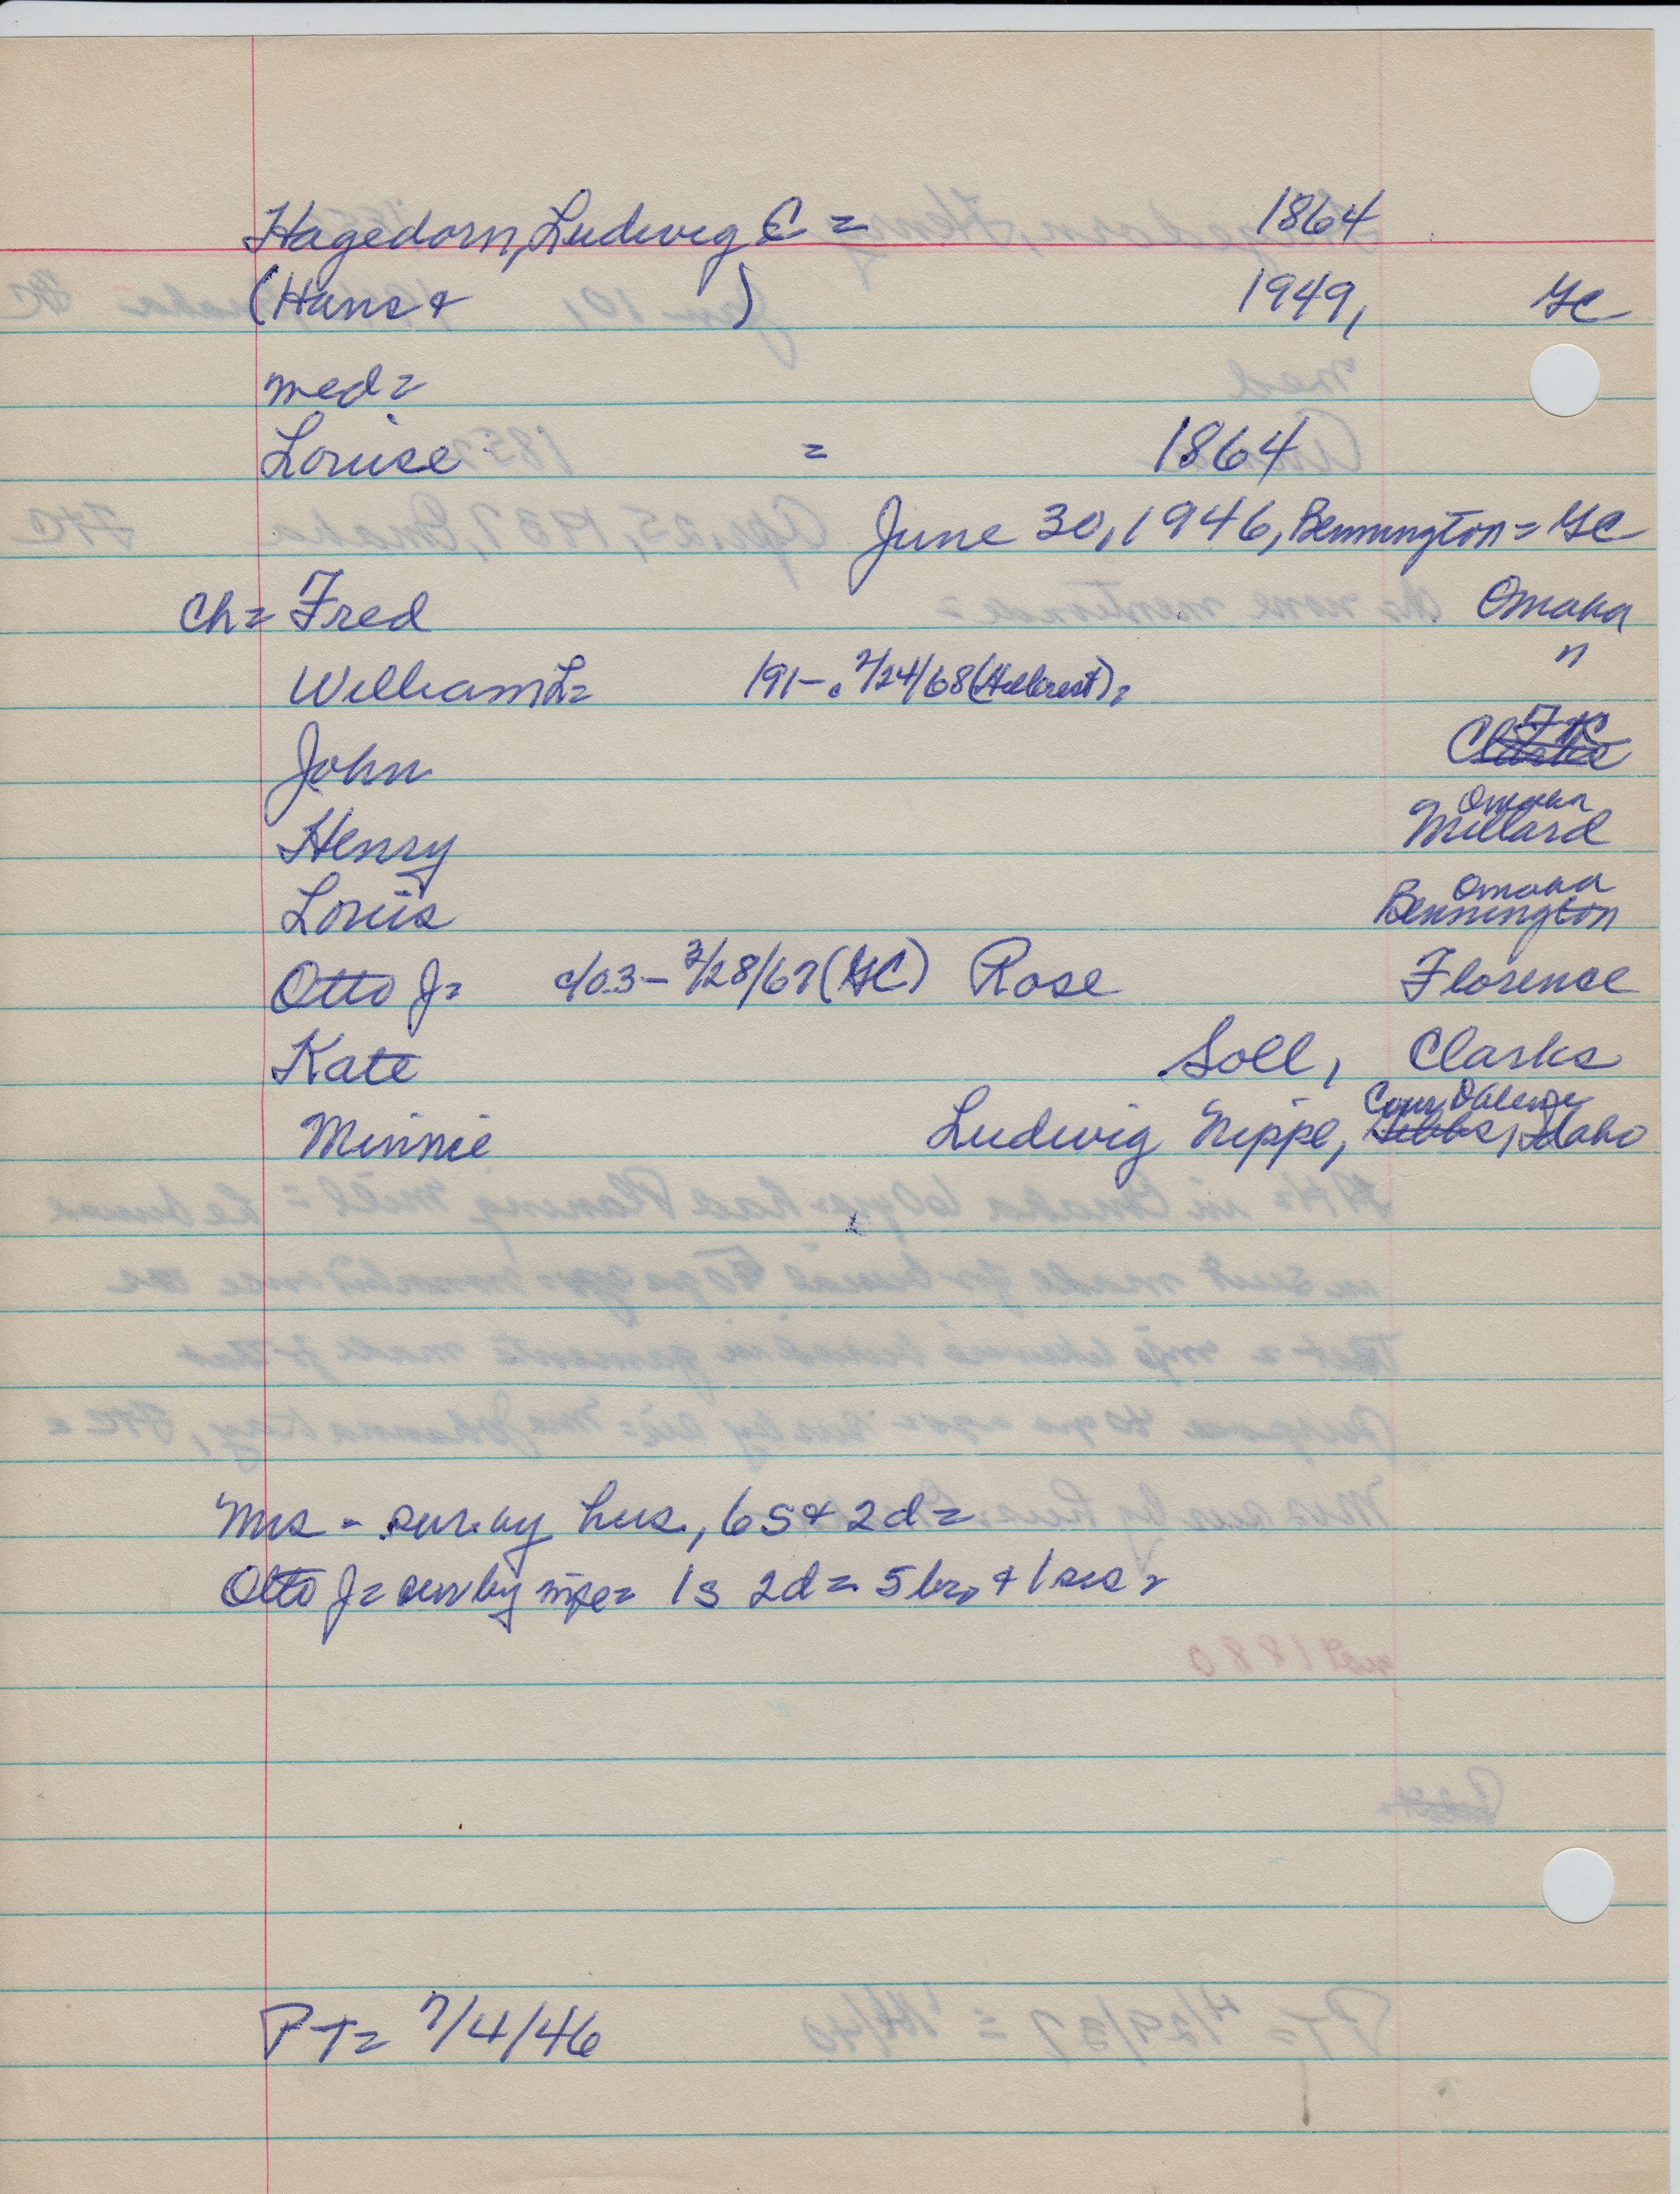 Hagedorn, Ludwig C = 1864
(Hans & ) 1949, GC
med =
Louise = 1864
June 30, 1946, Bennington = GC
Ch = Fred Omaha
William L = 191-. 7/24/68 (Hillcrest) = "
John
Omaha
Henry Millard
Omaha
Louis Bennington
Otto J = 3/28/67 (GC) Rose Florence
Kate Soll, Clarks
Minnie Ludwig Nippe, Idaho
Mrs - sur. by hus., 6 S & 2 d =
Otto J = sur by wife = 1 s 2 d = 5 bro & 1 sis =
PT = 7/4/46